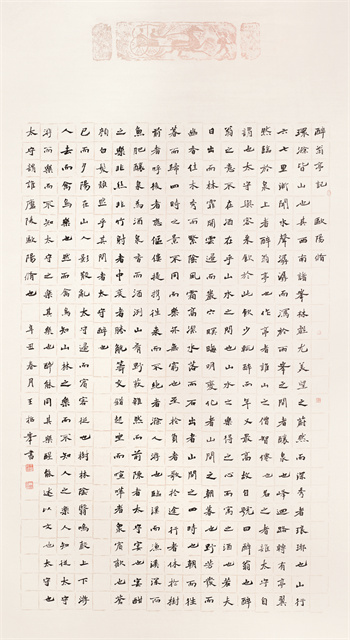 醉翁亭記 歐陽脩
環滁皆山也其西南諸峯林壑尤美望之蔚然而深秀者琅琊也山行
六七里漸聞水聲潺潺而瀉於兩峯之間者釀泉也峰迴路轉有亭翼
然臨於泉上者醉翁亭也作亭者誰山之僧智僊也名之者誰太守自
謂也太守與客來飲於此飲少輒醉而年又最高故自號曰醉翁也醉
翁之意不在酒在乎山水之間也山水之樂得之心而寓之酒也若夫
日出而林霏開雲歸而巖穴暝晦明變化者山間之朝暮也野芳發而
幽香佳木秀而繁陰風霜高潔水落而石出者山間之四時也朝而往
暮而歸四時之景不同而樂亦無窮也至於負者歌於途行者休於樹
前者呼後者應傴僂提攜往來而不絕者滁人遊也臨溪而漁溪深而
魚肥釀泉為酒泉香而酒洌山肴野蔌雜然而前陳者太守宴也宴酣
之樂非絲非竹射者中奕者勝觥籌交錯起坐而喧嘩者衆賓歡也蒼
顏白髮頹然乎其間者太守醉也
已而夕陽在山人影散亂太守歸而賓客從也樹林陰翳鳴聲上下游
人去而禽鳥樂也然而禽鳥知山林之樂而不知人之樂人知從太守
游而樂而不知太守之樂其樂也醉能同其樂醒能述以文者太守也
太守謂誰廬陵歐陽脩也 辛丑春月王書